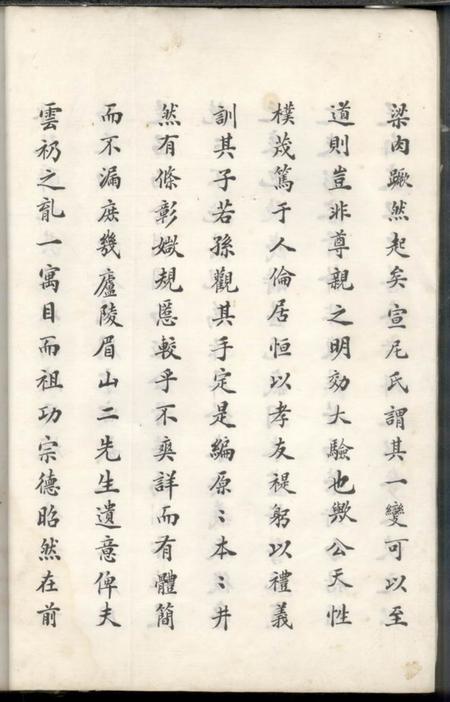 梁肉蹶然起矣宣尼氏謂其一變可以至
道則豈非尊親之明効大驗也歟公天性
樸茂篤于人倫居恒以孝友褆躬以禮義
訓其子若孫觀其手定是編原〻本〻井
然有條彰媺規慝較乎不爽詳而有體簡
而不漏庶幾廬陵眉山二先生遺意俾夫
雲礽之胤一寓目而祖功宗德昭然在前